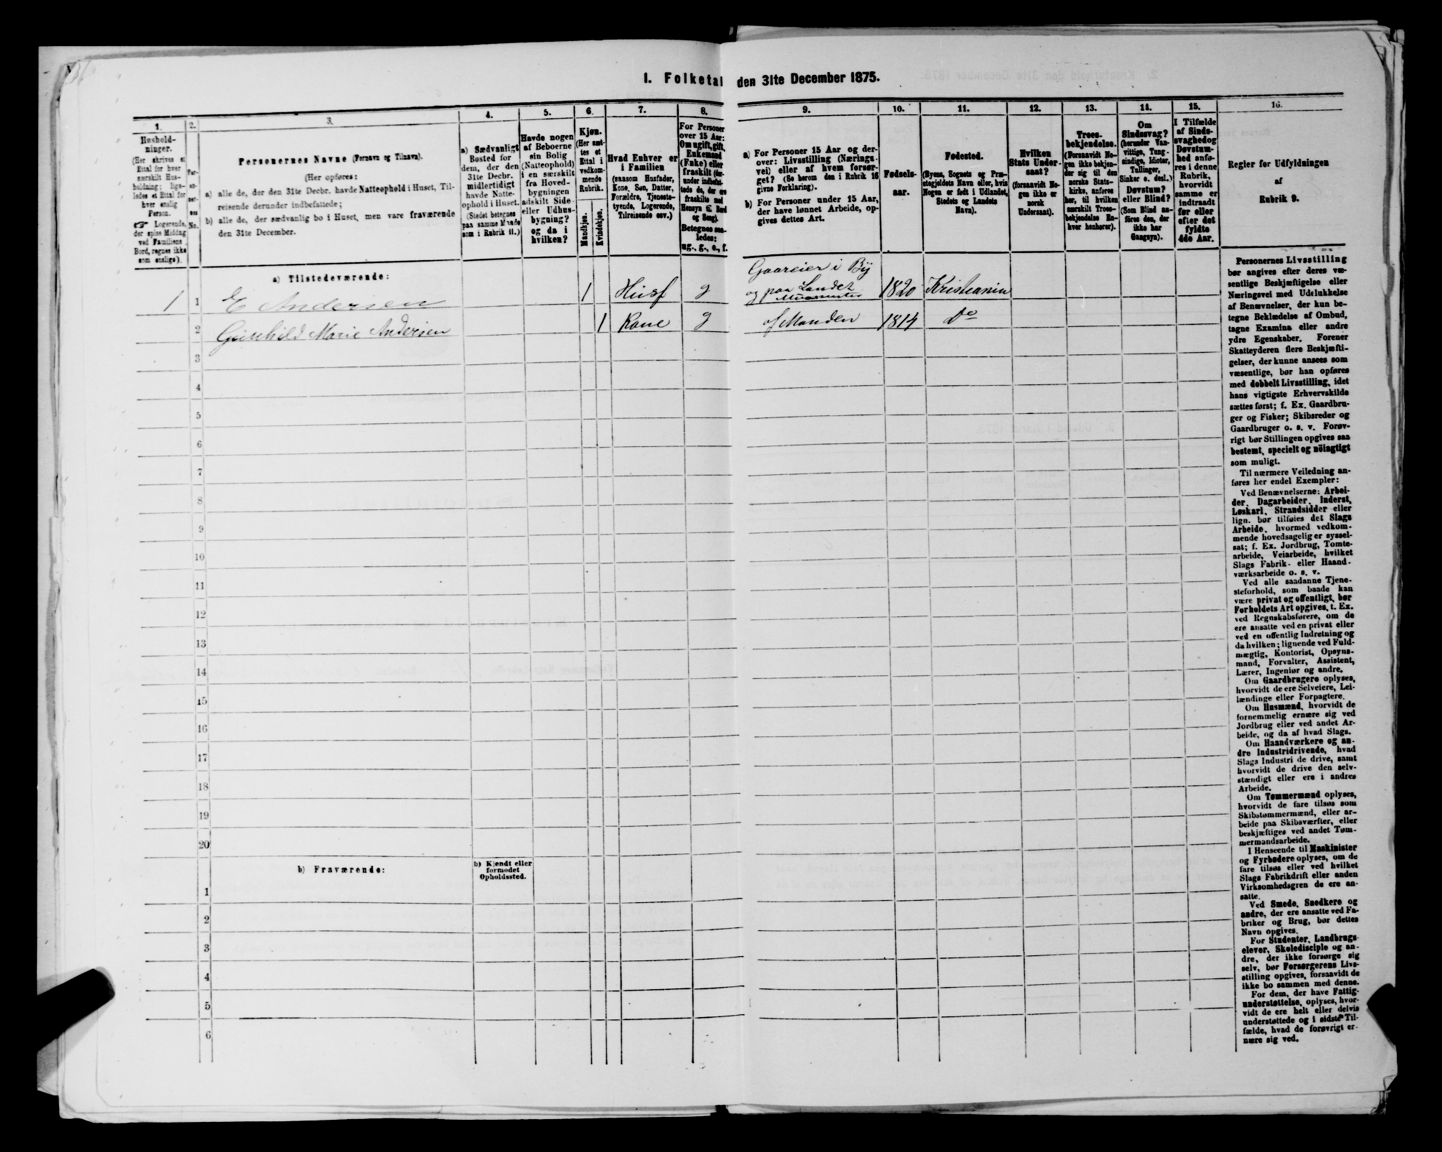 I. Folketal den 31te December 1875.
1.
Hushold-
ninger.
(Her skrives et
Ettal for hver
særskilt Hus-
holdning; lige-
ledes et Ettal for
hver enslig
Person.
Logerende,
der spise Middag
ved Familiens
Bord, regnes ikke
som enslige).
2.
No.
3.
Personernes Navne (Fornavn og Tilnavn).
(Her opføres:
a) alle de, der den 31te Decbr. havde Natteophold i Huset, Til-
reisende derunder indbefattede;
b) alle de, der sædvanlig bo i Huset, men vare fraværende
den 31te December.
4.
a) Sædvanligt
Bosted for
dem, der den
31te Decbr.
midlertidigt
havde Natte-
ophold i Huset.
(Stedet betegnes
paa samme Maade
som i Rubrik 11.)
5.
Havde nogen
af Beboerne
sin Bolig
(Natteophold)
i en særskilt
fra Hoved-
bygningen
adskilt Side-
eller Udhus-
bygning?
og da i
hvilken?
6.
Kjøn.
(Her sæt-
tes et
Ettal i
vedkom-
mende
Rubrik.)
Mandkjøn.
Kvindekjøn.
7.
Hvad Enhver er
i Familien
(saasom Husfader,
Kone, Søn, Datter,
Forældre, Tjeneste-
tyende, Logerende,
Tilreisende osv.)
8.
For Personer
over 15 Aar:
Om ugift, gift,
Enkemand
(Enke) eller
fraskilt (der-
under indbefat-
tede de, der ere
fraskilte med
Hensyn til Bord
og Seng).
Betegnes saa-
ledes:
ug., g., e., f.
9.
a) For Personer 15 Aar og der-
over: Livsstilling (Nærings-
vei) eller af hvem forsør-
get? (Se herom den i Rubrik 16
givne Forklaring).
b) For Personer under 15 Aar,
der have lønnet Arbeide, op-
gives dettes Art.
10.
Fødsels-
aar.
11.
Fødested.
(Byens, Sognets og Præ-
stegjeldets Navn eller, hvis
Nogen er født i Udlandet,
Stedets og Landets
Navn).
12.
Hvilken
Stats Under-
saat?
(forsaavidt No-
gen ikke er
norsk
Undersaat).
13.
Troes-
bekjendelse.
(Forsaavidt No-
gen ikke bekjen-
der sig til den
norske Stats-
kirke, anføres
her, til hvilken
særskilt Troes-
bekjendelse En-
hver henhører).
14.
Om
Sindssvag?
(herunder Van-
vittige, Tung-
sindige, Idioter,
Tullinger,
Sinker o. desl.)
Døvstum?
eller Blind?
(Som Blind an-
føres den, der
ikke har
Gangsyn).
15.
I Tilfælde
af Sinds-
svaghed og
Døvstum-
hed anfø-
res i denne
Rubrik,
hvorvidt
samme er
indtraadt
før eller
efter det
fyldte
4de Aar.
16.
Regler for Udfyldningen
af
Rubrik 9.
a) Tilstedeværende:
1 1 E Andersen 1 Husf g Gaareier i By og paa Landet 1820 Kristiania
2 Gunhild Marie Andersen 1 Kone g af Manden 1814 do
3
4
5
6
7
8
9
10
11
12
13
14
15
16
17
18
19
20
b) Fraværende:
b) Kjendt eller
formodet
Opholdssted.
1
2
3
4
5
6
Personernes Livsstilling
bør angives efter deres væ-
sentlige Beskjæftigelse eller
Næringsvei med Udelukkelse
af Benævnelser, der kun be-
tegne Beklædelse af Ombud,
tagne Examina eller andre
ydre Egenskaber. Forener
Skatteyderen flere Beskjæfti-
gelser, der kunne ansees som
væsentlige, bør han opføres
med dobbelt Livsstilling, idet
hans vigtigste Erhvervskilde
sættes først; f. Ex. Gaardbru-
ger og Fisker; Skibsreder og
Gaardbruger o. s. v. Forøv-
rigt bør Stillingen opgives saa
bestemt, specielt og nöiagtigt
som muligt.
Til nærmere Veiledning an-
føres her endel Exempler:
Ved Benævnelserne: Arbei-
der, Dagarbeider, Inderst,
Løskarl, Strandsidder eller
lign. bør tilføies det Slags
Arbeide, hvormed vedkom-
mende hovedsagelig er syssel-
sat; f. Ex. Jordbrug, Tomte-
arbeide, Veiarbeide, hvilket
Slags Fabrik- eller Haand-
værksarbeide o. s. v.
Ved alle saadanne Tjene-
steforhold, som baade kan
være privat og offentligt, bør
Forholdets Art opgives, t. Ex.
ved Regnskabsførere, om de
ere ansatte ved en privat eller
ved en offentlig Indretning og
da hvilken; lignende ved Fuld-
mægtig, Kontorist, Opsyns-
mand, Forvalter, Assistent,
Lærer, Ingeniør og andre.
Om Gaardbrugere oplyses,
hvorvidt de ere Selveiere, Lei-
lændinge eller Forpagtere.
Om Husmænd, hvorvidt de
fornemmelig ernære sig ved
Jordbrug eller ved andet Ar-
beide, og da af hvad Slags.
Om Haandværkere og an-
dre Industridrivende, hvad
Slags Industri de drive, samt
hvorvidt de drive den selv-
stændigt eller ere i andres
Arbeide.
Om Tømmermænd oplyses,
hvorvidt de fare tilsøs som
Skibstømmermænd, eller ar-
beide paa Skibsværfter, eller
beskjæftiges ved andet Tøm-
mermandsarbeide.
I Henseende til Maskinister
og Fyrbødere oplyses, om de
fare tilsøs eller ved hvilket
Slags Fabrikdrift eller anden
Virksomhedsgren de ere an-
satte.
Ved Smede, Snedkere og
andre, der ere ansatte ved Fa-
briker og Brug, bør dettes
Navn opgives.
For Studenter, Landbrugs-
elever, Skoledisciple og an-
dre, der ikke forsørge sig
selv, bør Forsørgerens Livs-
stilling opgives, forsaavidt de
ikke bo sammen med denne.
For dem, der have Fattig-
understøttelse, oplyses, hvor-
vidt de ere helt eller delvis
understøttede og i sidste Til-
fælde, hvad de forøvrigt er-
nære sig ved.